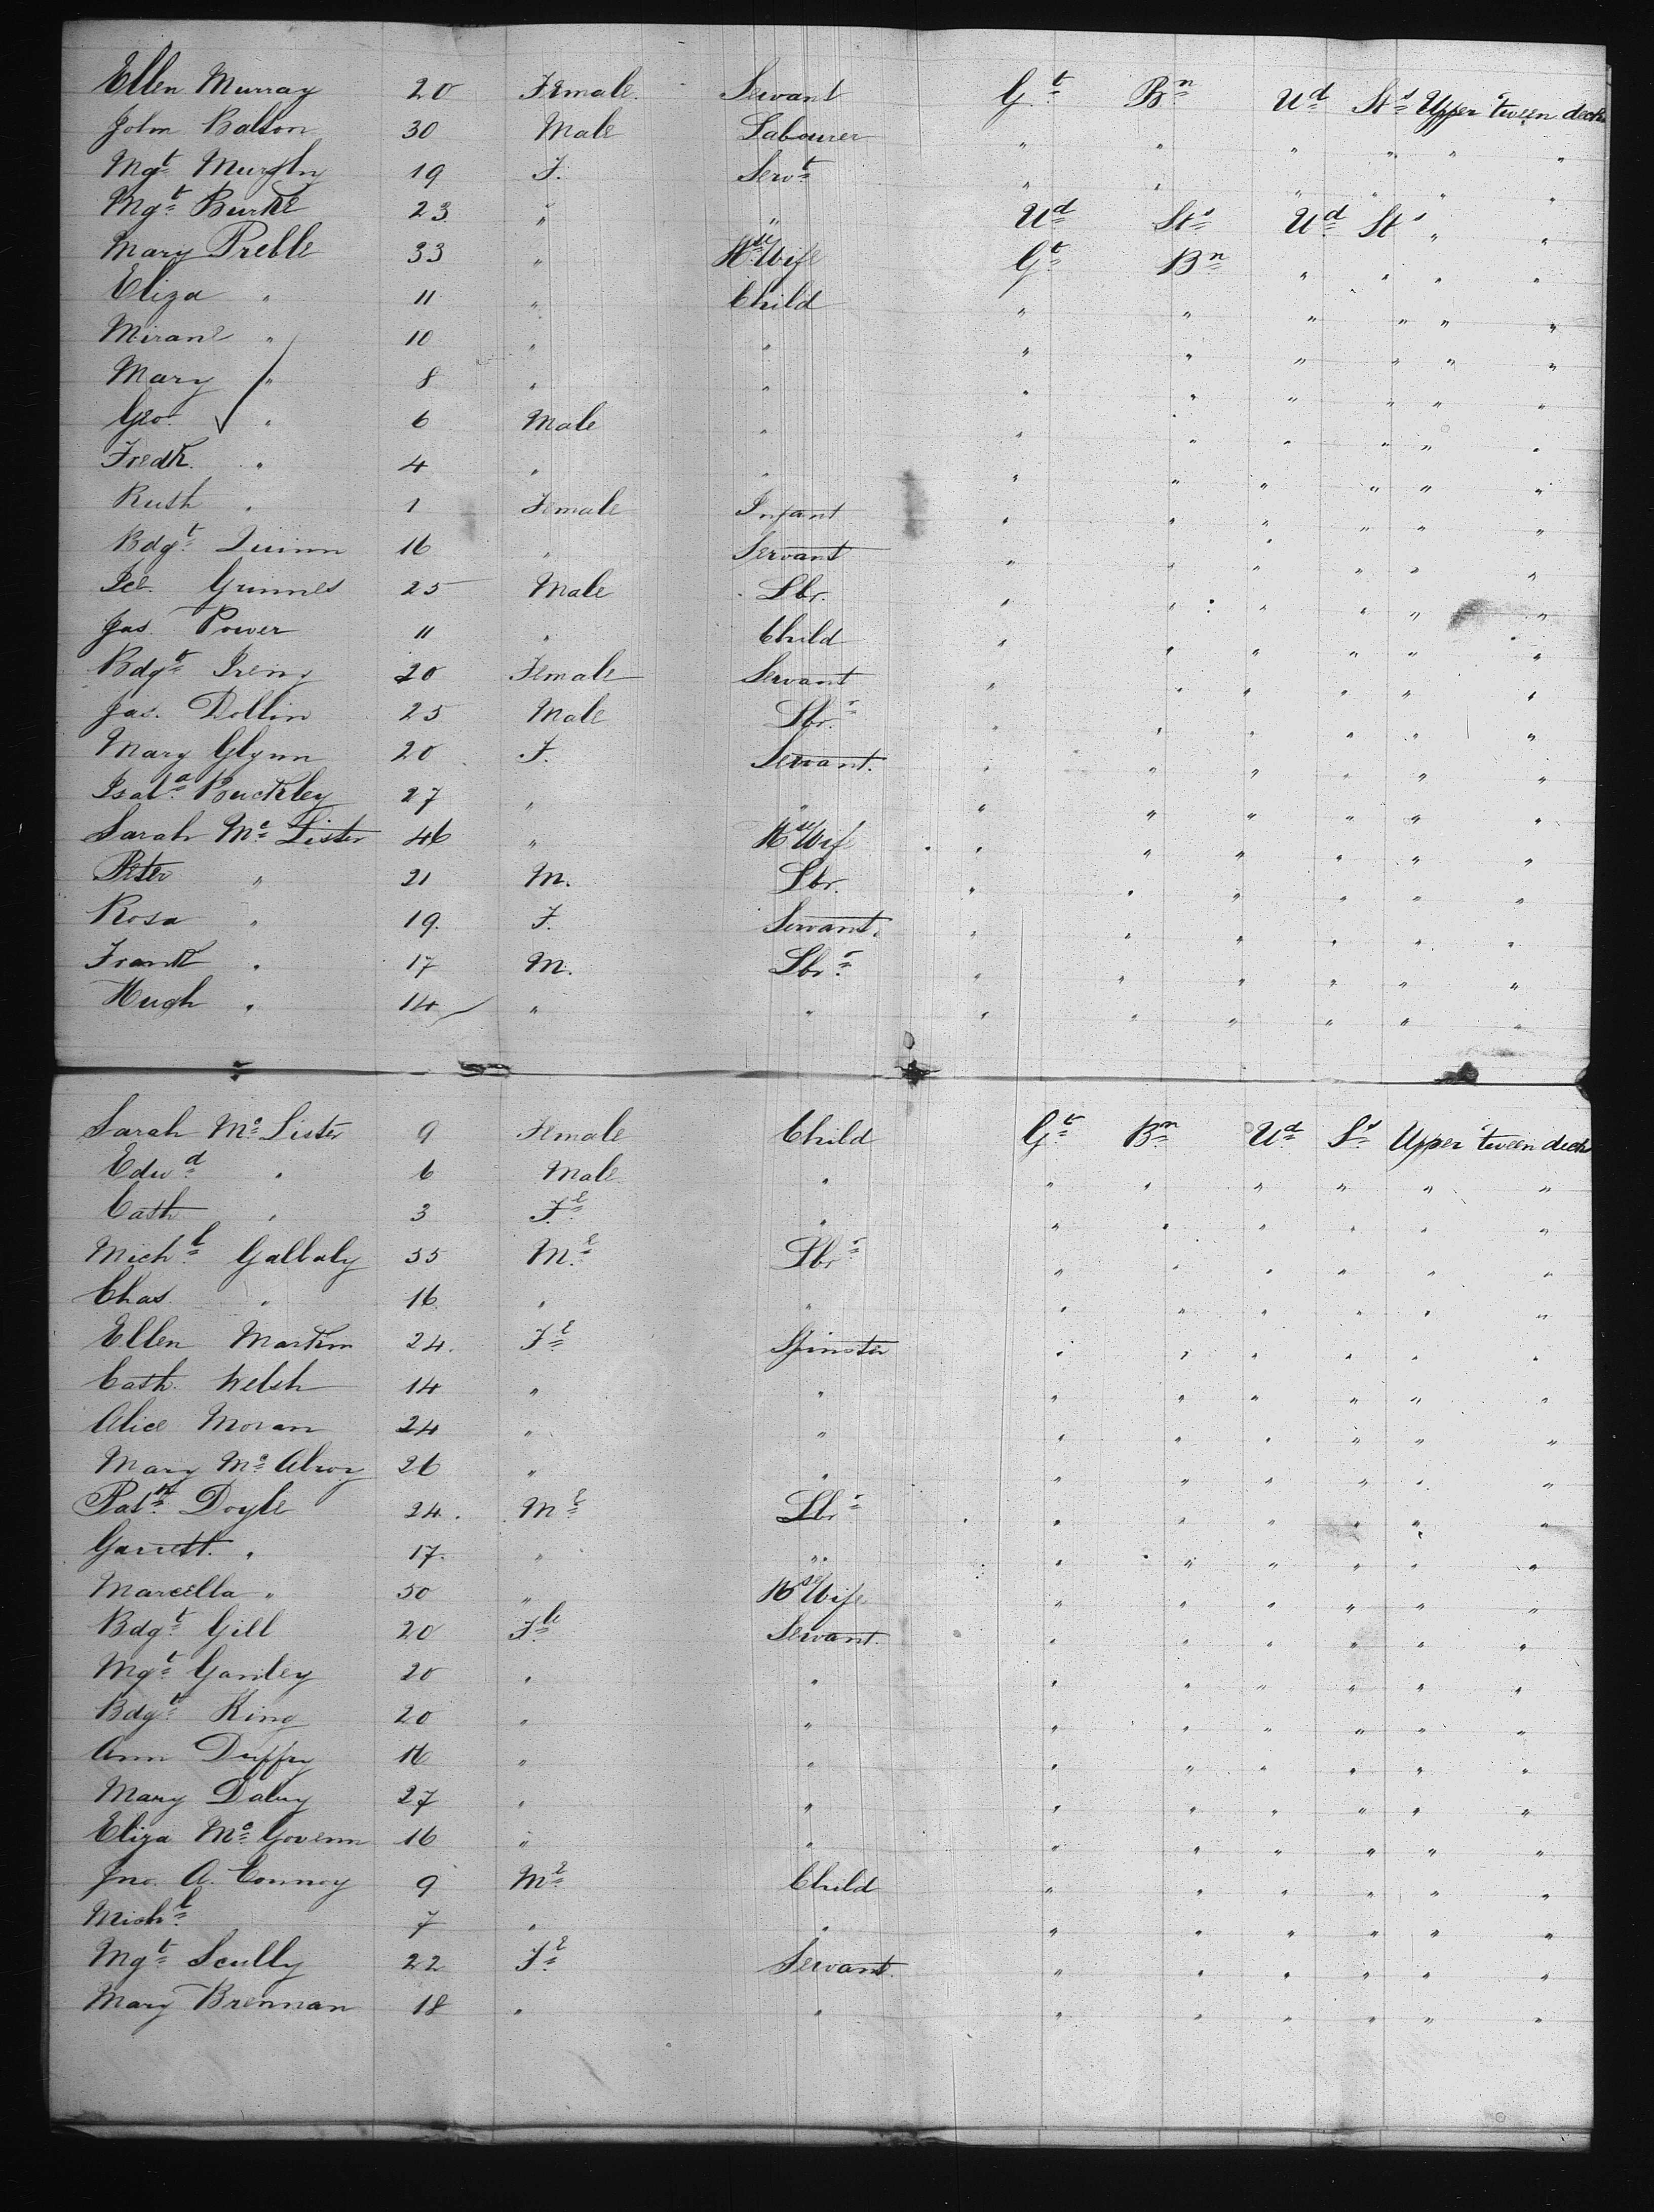 Ellen Murray 20 Female. Servant Gt Bn Ud Sts Upper tween decks
John Balton 30 Male Labourer " " " " " "
Mgt Murphy 19 F. Servt " " " " " "
Mgt Burke 23 " " Ud Sts Ud Sts " "
Mary Preble 33 " Hse Wife Gt Bn " " " "
Eliza " 11 " Child " " " " " "
Mirane " 10 " " " " " " " "
Mary " 8 " " " " " " " "
Geo. " 6 Male " " " " " " "
Fredk. " 4 " " " " " " " "
Ruth " 1 Female Infant " " " " " "
Bdgt Quinn 16 " Servant " " " " " "
Grinnes 25 Male Lbr. " " " " " "
Jas. Power 11 " Child " " " " " "
Bdgt 20 Female Servant " " " " " "
Jas. Dollin 25 Male Lbr. " " " " " "
Mary Glynn 20 F. Servant. " " " " " "
Isala Buckley 27 " " " " " " " "
Sarah Mc Lister 46 " Hse Wife " " " " " "
Peter " 21 M. Lbr. " " " " " "
Rosa " 19. F. Servant. " " " " " "
Frank " 17 M. Lbr " " " " " "
Hugh " 14 " " " " " " " "
Sarah Mc Lister 9 Female Child Gt Bn Ud Ss Upper tween decks
Edwd " 6 Male " " " " " " "
Cath " 3 Fe " " " " " " "
Michl Galbaly 55 Me Lbr " " " " " "
Chas. " 16 " " " " " " " "
Ellen Martin 24. Fe Spinster " " " " " "
Cath. Welsh 14 " " " " " " " "
Alice Moran 24 " " " " " " " "
Mary Mc Alroy 26 " " " " " " " "
Patk Doyle 24. Me Lbr " " " " " "
Garrett. " 17. " " " " " " " "
Marcella " 50 " Hse Wife " " " " " "
Bdgt Gill 20 Fle Servant. " " " " " "
Mgt Ganley 20 " " " " " " " "
Bdgt King 20 " " " " " " " "
Ann Duffy 16 " " " " " " " "
Mary Daley 27 " " " " " " " "
Eliza Mc Govenn 16 " " " " " " " "
Jno. A. Connoy 9 Me Child " " " " " "
Michl 7 " " " " " " " "
Mgt Scully 22 Fe Servant. " " " " " "
Mary Brennan 18 " " " " " " " "